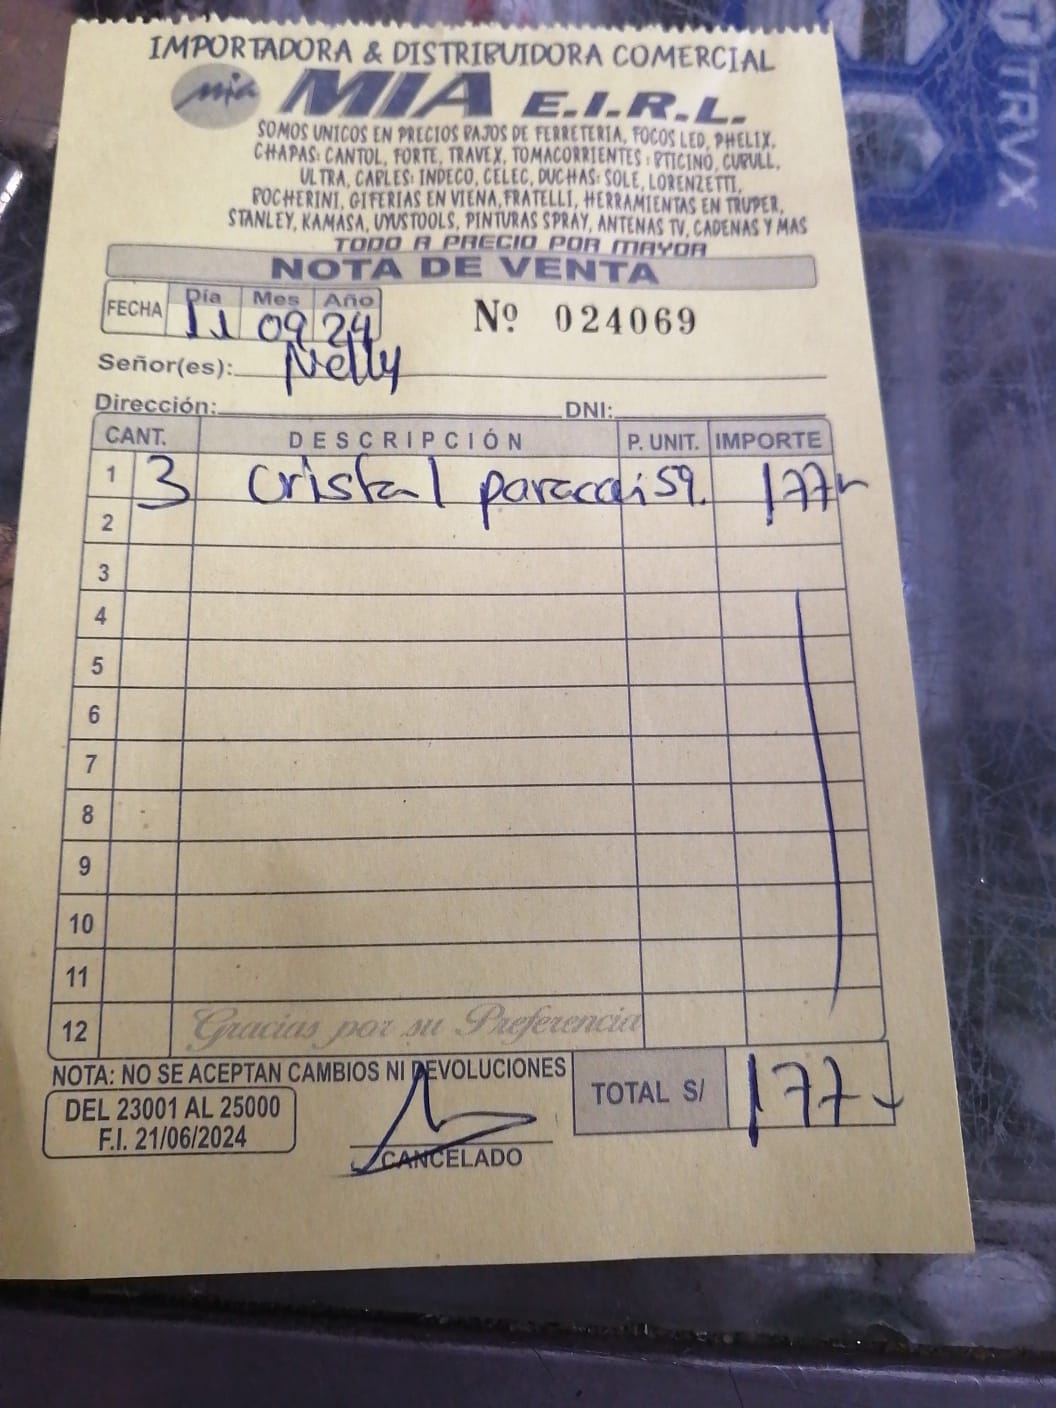 IMPORTADORA & DISTRIBUIDORA COMERCIAL
mia MIA E.I.R.L.
SOMOS UNICOS EN PRECIOS BAJOS DE FERRETERIA, FOCOS LED, PHELIX,
CHAPAS: CANTOL, FORTE, TRAVEX, TOMACORRIENTES : BTICINO, CURULL,
ULTRA, CABLES: INDECO, CELEC, DUCHAS: SOLE, LORENZETTI,
BOCHERINI, GIFERIAS EN VIENA, FRATELLI, HERRAMIENTAS EN TRUPER,
STANLEY, KAMASA, UYUSTOOLS, PINTURAS SPRAY, ANTENAS TV, CADENAS Y MAS
TODO A PRECIO POR MAYOR
NOTA DE VENTA
FECHA Día Mes Año
11 09 24 Nº 024069
Señor(es): Nelly
Dirección: DNI:
CANT. DESCRIPCIÓN P. UNIT. IMPORTE
1 3 cristal paracai 59. 177
2
3
4
5
6
7
8
9
10
11
12 Gracias por su Preferencia
NOTA: NO SE ACEPTAN CAMBIOS NI DEVOLUCIONES
DEL 23001 AL 25000
F.I. 21/06/2024
CANCELADO
TOTAL S/ 177
TRVX